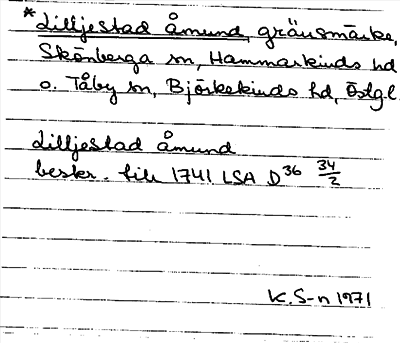 *Lilljestad åmund, gränsmärke,
Skönberga sn, Hammarkinds hd
o. Tåby sn, Björkekinds hd, Östgl.
Lilljestad åmund
beskr. till 1741 LSA D36 34/2
K. S-n 1971